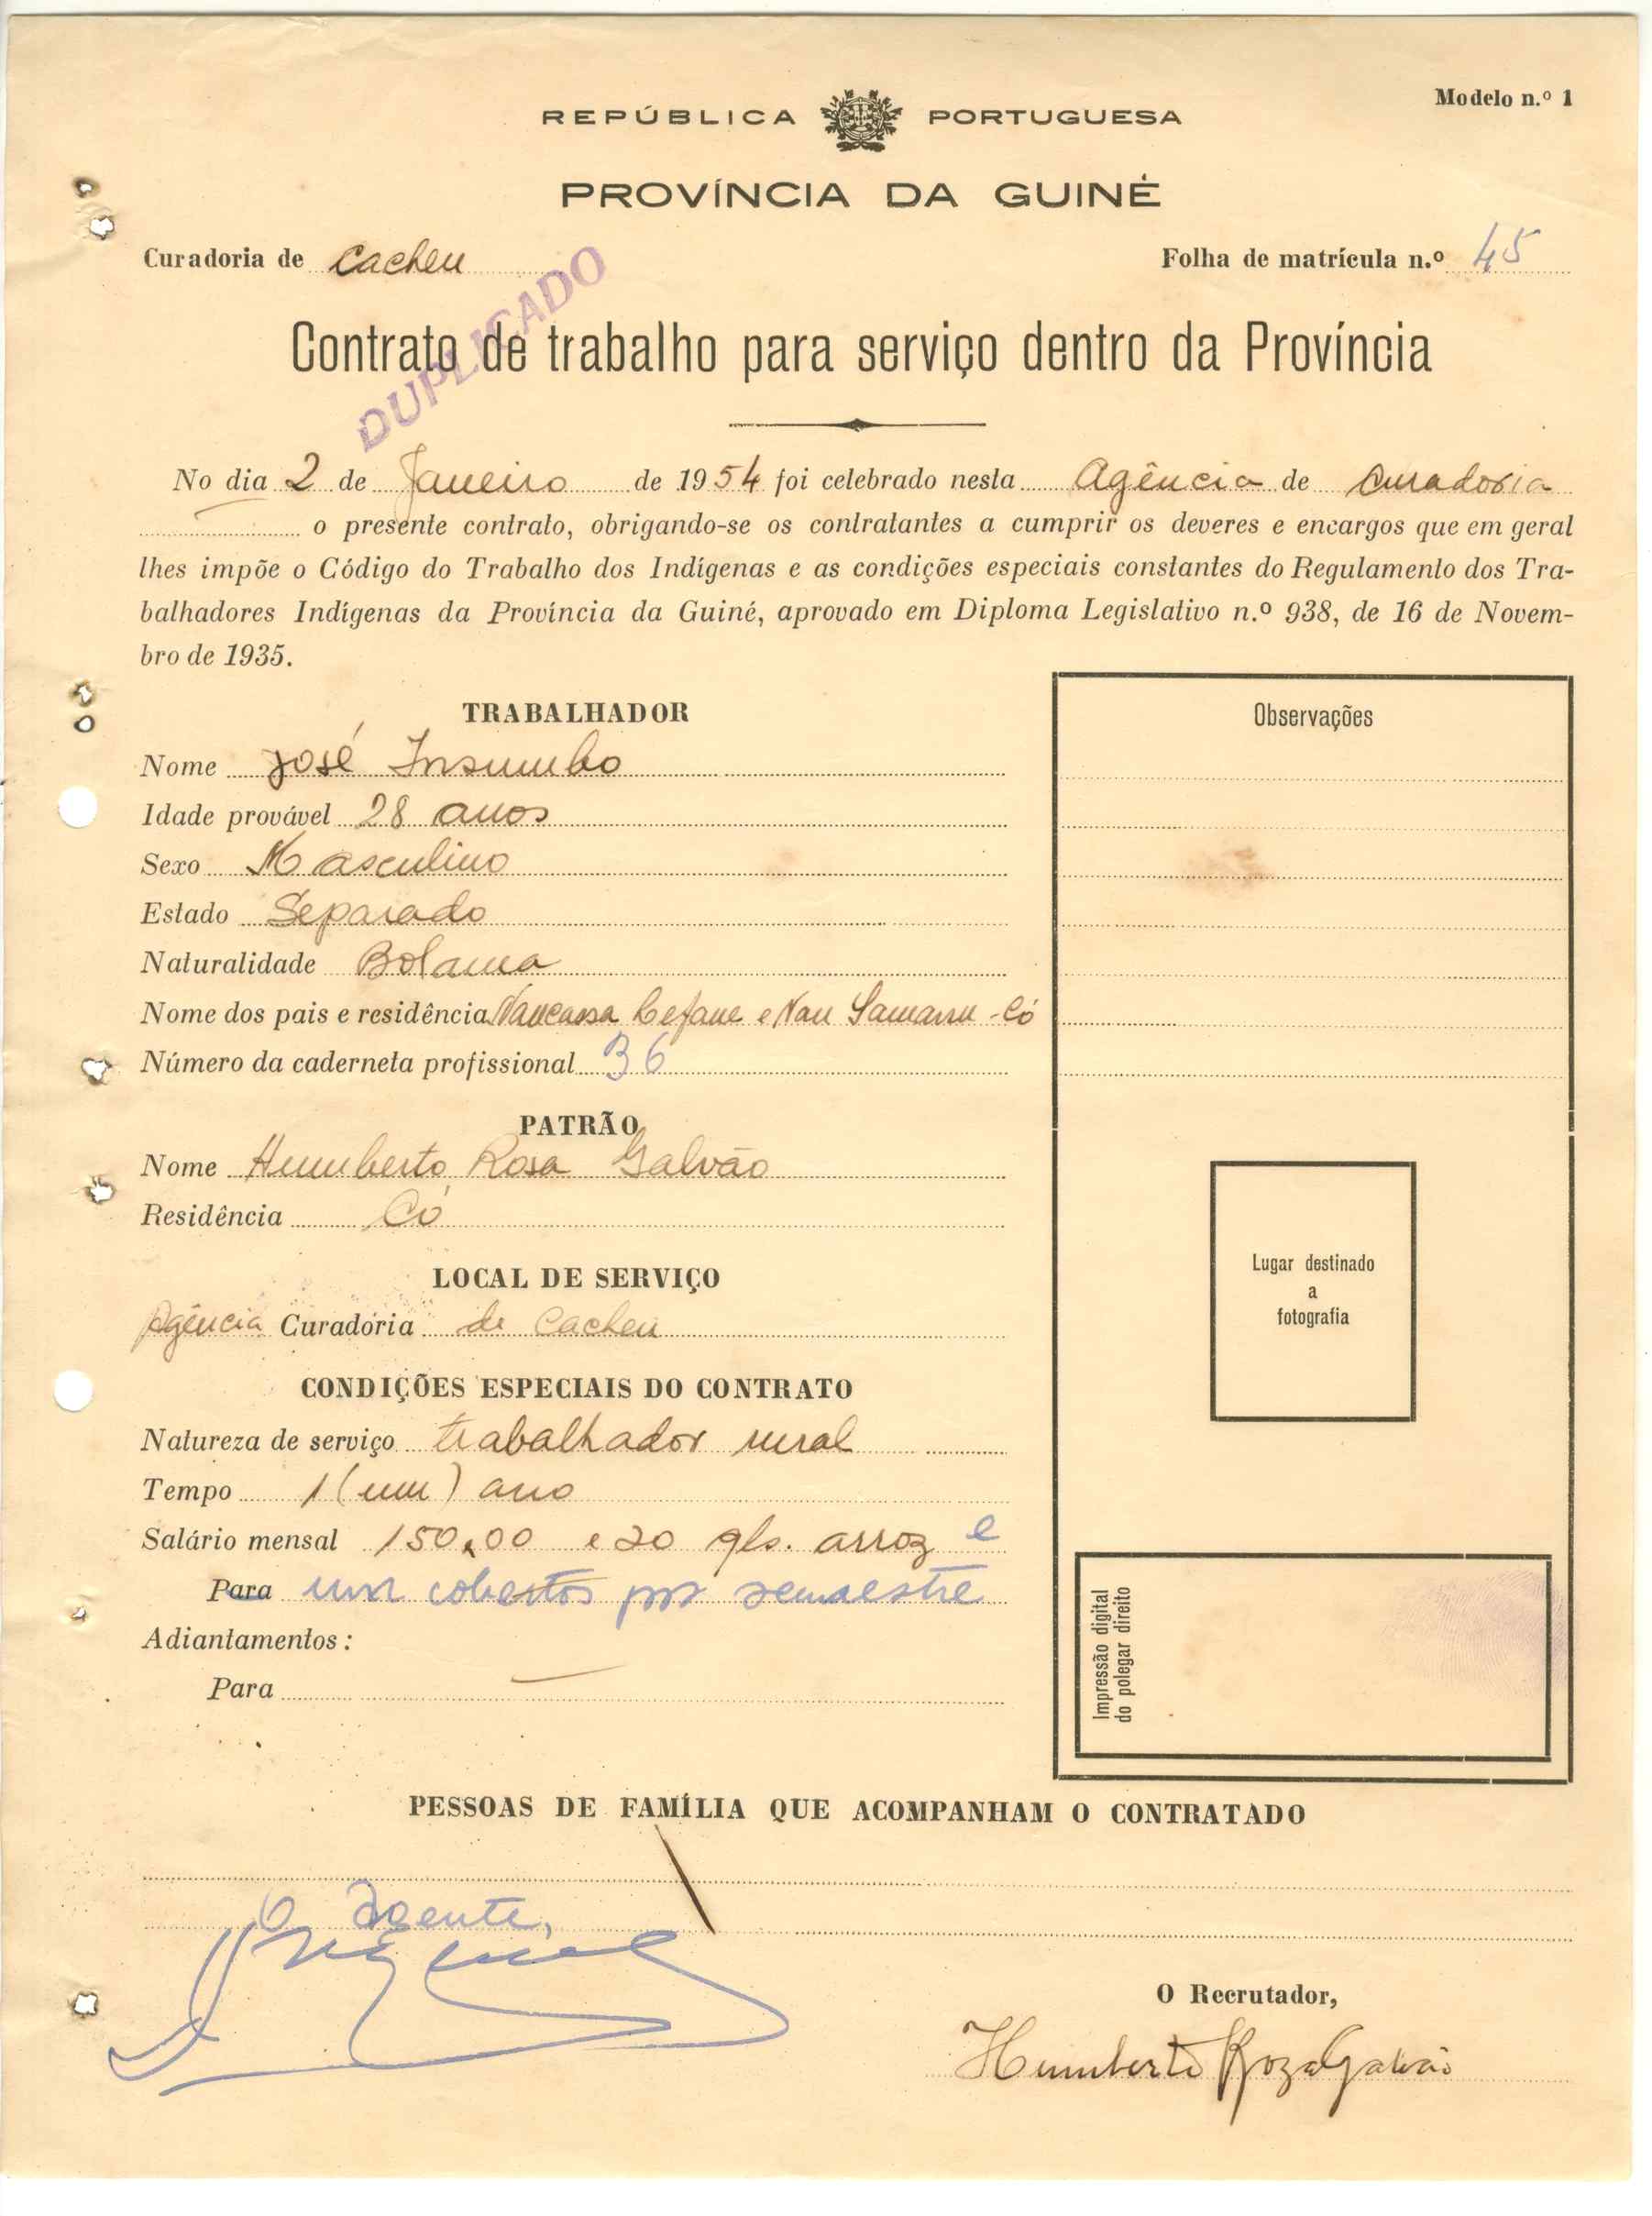 Modelo n.º 1
REPÚBLICA PORTUGUESA
PROVÍNCIA DA GUINÉ
Curadoria de Cacheu
Folha de matrícula n.º 45
DUPLICADO
Contrato de trabalho para serviço dentro da Província
No dia 2 de Janeiro de 1954 foi celebrado nesta Agência de Curadoria
o presente contrato, obrigando-se os contratantes a cumprir os deveres e encargos que em geral
lhes impõe o Código do Trabalho dos Indígenas e as condições especiais constantes do Regulamento dos Tra-
balhadores Indígenas da Província da Guiné, aprovado em Diploma Legislativo n.º 938, de 16 de Novem-
bro de 1935.
TRABALHADOR
Nome José Insumbo
Idade provável 28 anos
Sexo Masculino
Estado Separado
Naturalidade Bolama
Nome dos pais e residência e Nau - Có
Número da caderneta profissional 36
PATRÃO
Nome Humberto Rosa Galvão
Residência Có
LOCAL DE SERVIÇO
Agência Curadoria de Cacheu
CONDIÇÕES ESPECIAIS DO CONTRATO
Natureza de serviço trabalhador rural
Tempo 1 (um) ano
Salário mensal 150,00 e 20 qls. arroz e
Para um cobertos por semestre
Adiantamentos :
Para
Observações
Lugar destinado
a
fotografia
Impressão digital
do polegar direito
PESSOAS DE FAMÍLIA QUE ACOMPANHAM O CONTRATADO
O Agente,
O Recrutador,
Humberto Roza Galvão